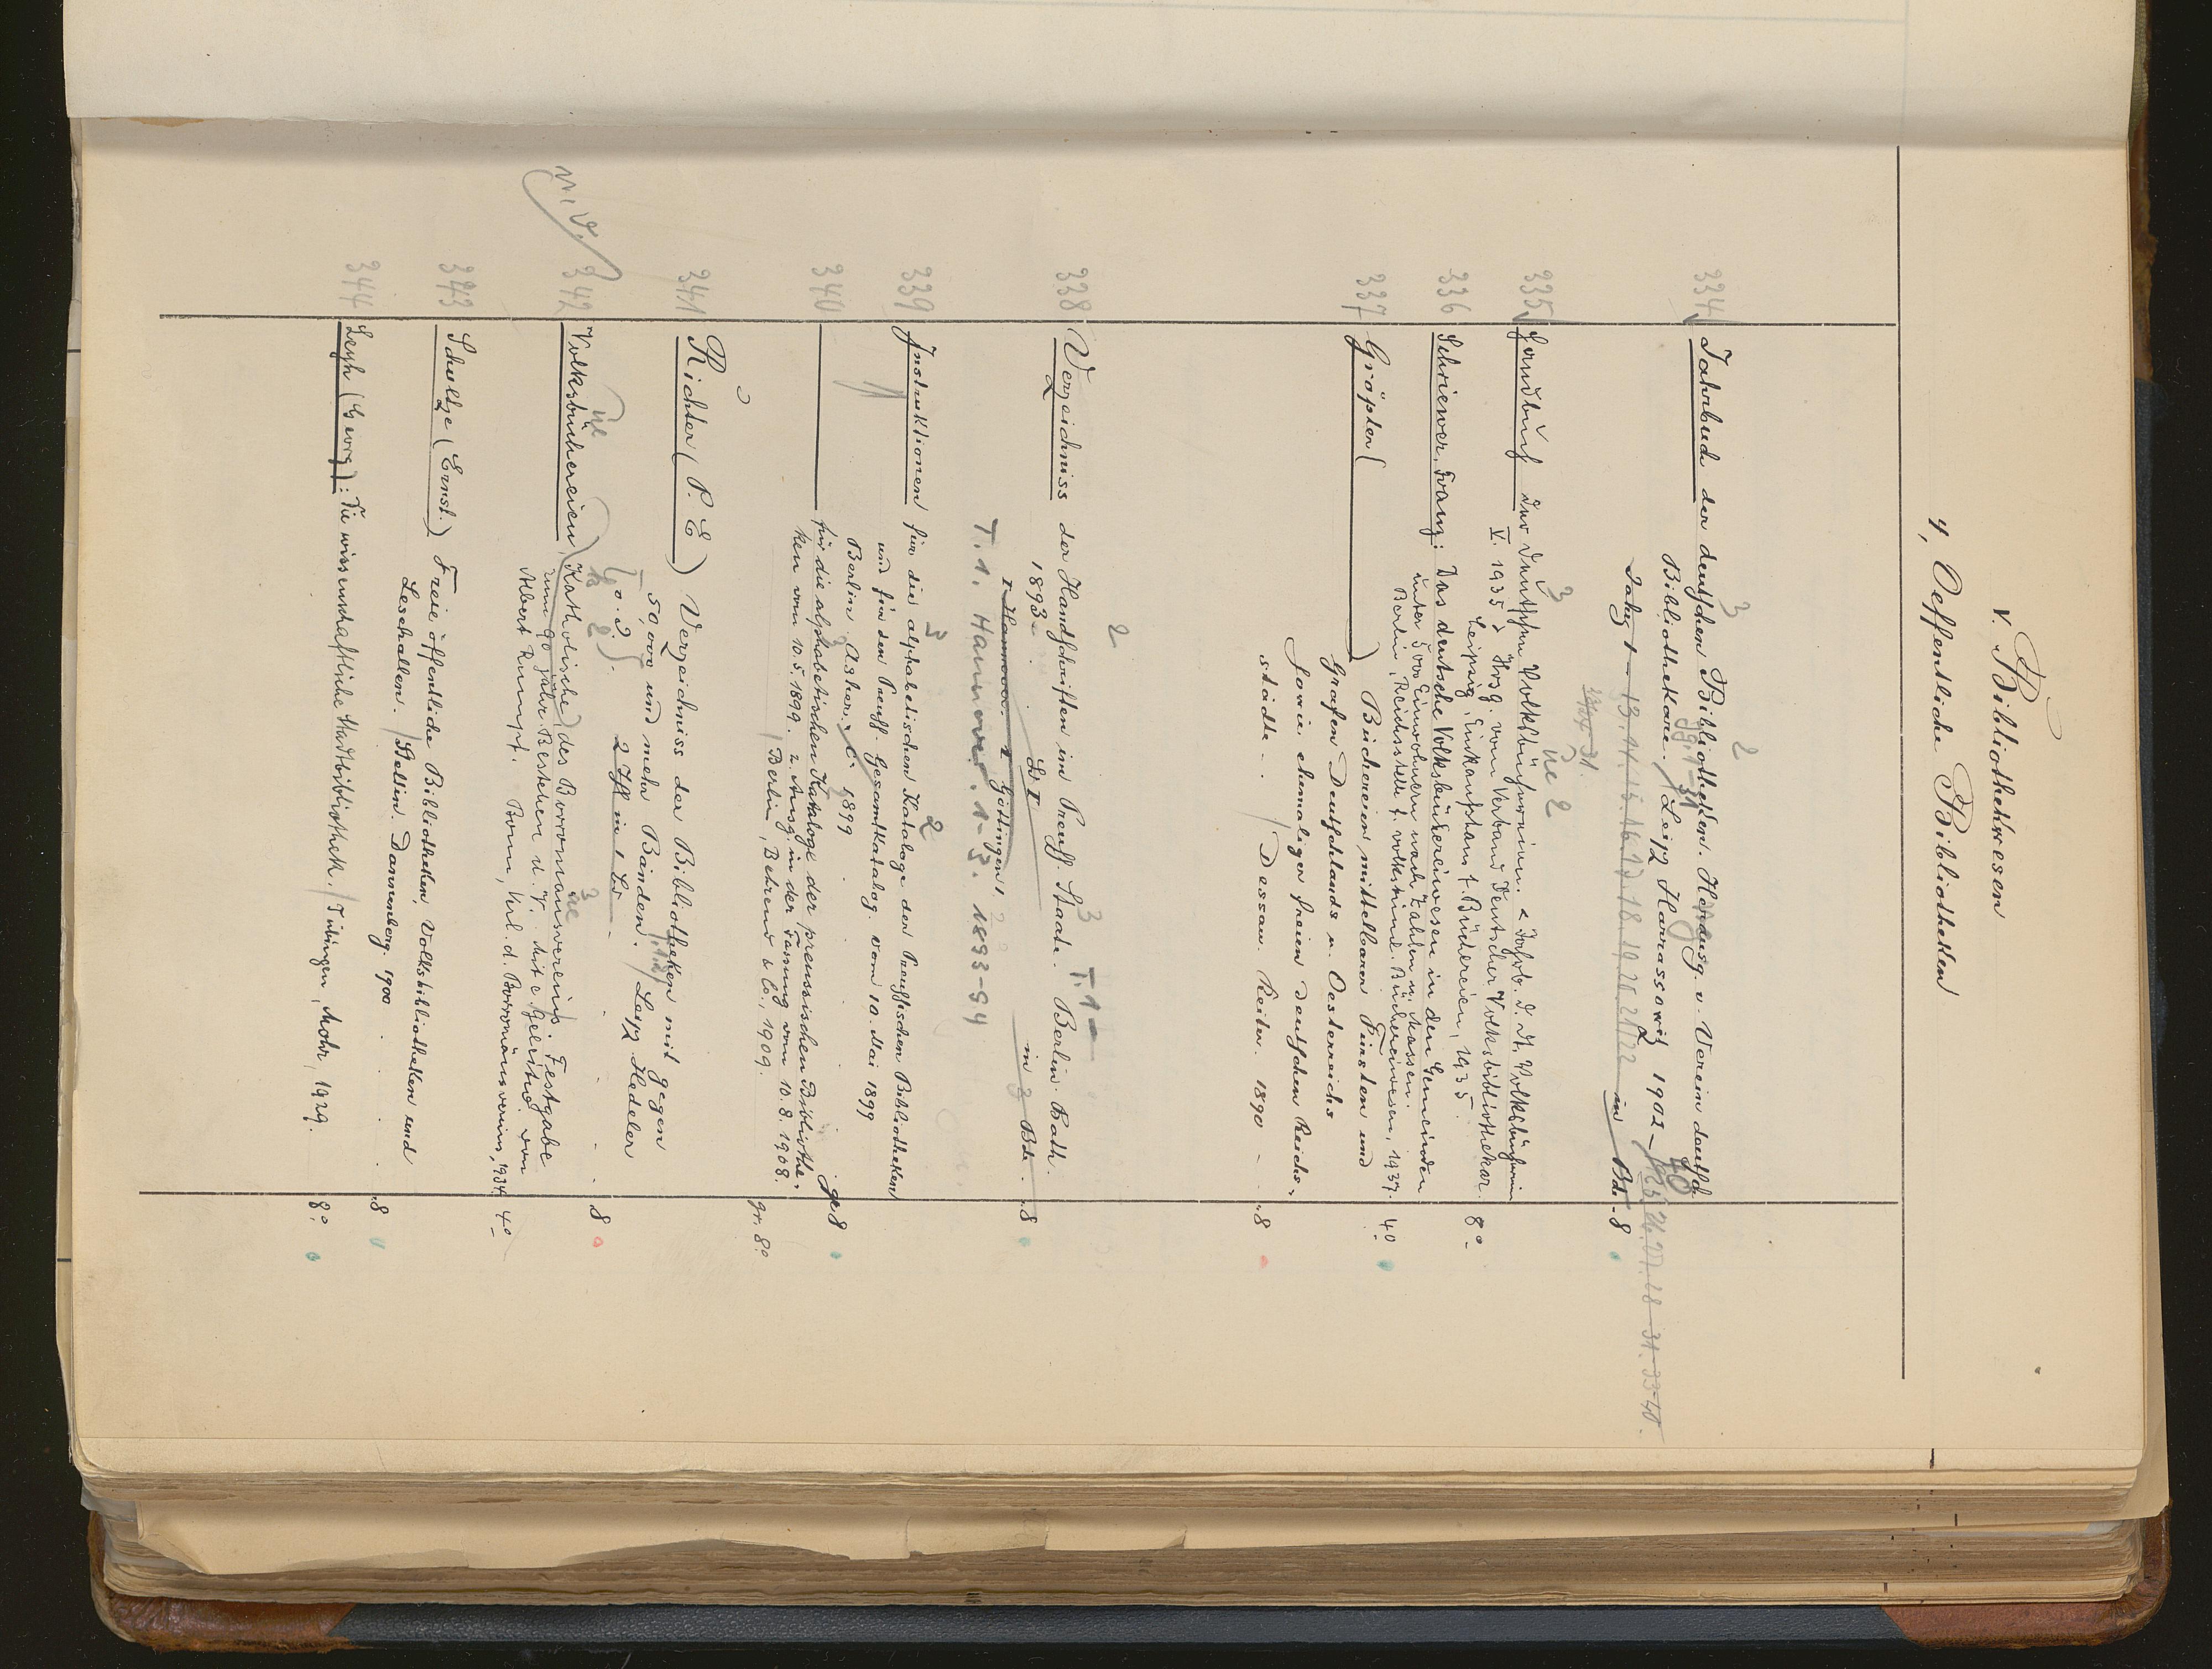 V. Bibliothekwesen
4, Oeffentliche Bibliotheken
3 2
334 Jahrbuch der deutschen Bibliotheken. Herausg. v. Verein deutsch
Bibliothekare. / Leipz Harrassowitz 1902 –
Jahrg 1 – 13. 14. 15. 16. 17. 18. 19. 20. 21/22 in Bd. 8
3 ne 2
335 Handbuch der Deutschen Volksbüchereien. < Jahrb. d. dt. Volksbüchereien
V. 1935 > Hrsg. vom Verband Deutscher Volksbibliothekar.
Leipzig, Einkaufshaus f. Büchereien, 1935. 8°
336 Schriewer, Franz: Das deutsche Volksbüchereiwesen in den Gemeinden
unter 5000 Einwohnern nach Zahlen u. Massen.
Berlin, Reichsstelle f. volkstüml. Büchereiwesen, 1937. 4°
337 Gröpler ( ) Büchereien mittelbarer Fürsten und
Grafen Deutschlands u. Oesterreichs
sowie ehemaliger freien deutschen Reichs-
städte . . / Dessau. Reiter. 1890 – . 8
2
3 T. 1 –
338 Verzeichniss der Handschriften im Preuß. Staate. Berlin. Bath.
1893 .
Bd I in 3 Bd. 8
I Hannover. I Göttingen 1.
T. 1. Hannover. 1-3. 1893-94
3 2
339 Instruktionen für die alphabetischen Kataloge der Preußischen Bibliotheken
und für den Preuß. Gesamtkatalog. vom 10. Mai 1899
Berlin. Asher. & C. 1899 gr. 8
340 für die alphabetischen Kataloge der preussischen Bibliothe-
ken vom 10. 5. 1899. 2. Ausg. in der Fassung vom 10. 8. 1908.
/ Berlin, Behrend & Co., 1909. gr. 8°
341 Richter (P. E) Verzeichniss der Bibliotheken mit gegen
50,000 und mehr Bänden. / Leipz Hedeler
[o. J.]. 2 Thl in 1 Bd . . 8
n. V. 342 Volksbüchereien, (Katholische) des Borromäusvereins. Festgabe
zum 90 jähr. Bestehen d. V. mit e. Geleitw. von
Albert Rumpf. Bonn, Verl. d. Borromäusvereins, 1934. 4°
343 Schultze (Ernst.) Freie öffentliche Bibliotheken, Volksbibliotheken und
Lesehallen. / Stettin. Dannenberg. 1900 . . . 8
344 Leyh (Georg): Die wissenschaftliche Stadtbibliothek. / Tübingen, Mohr, 1929. 8°